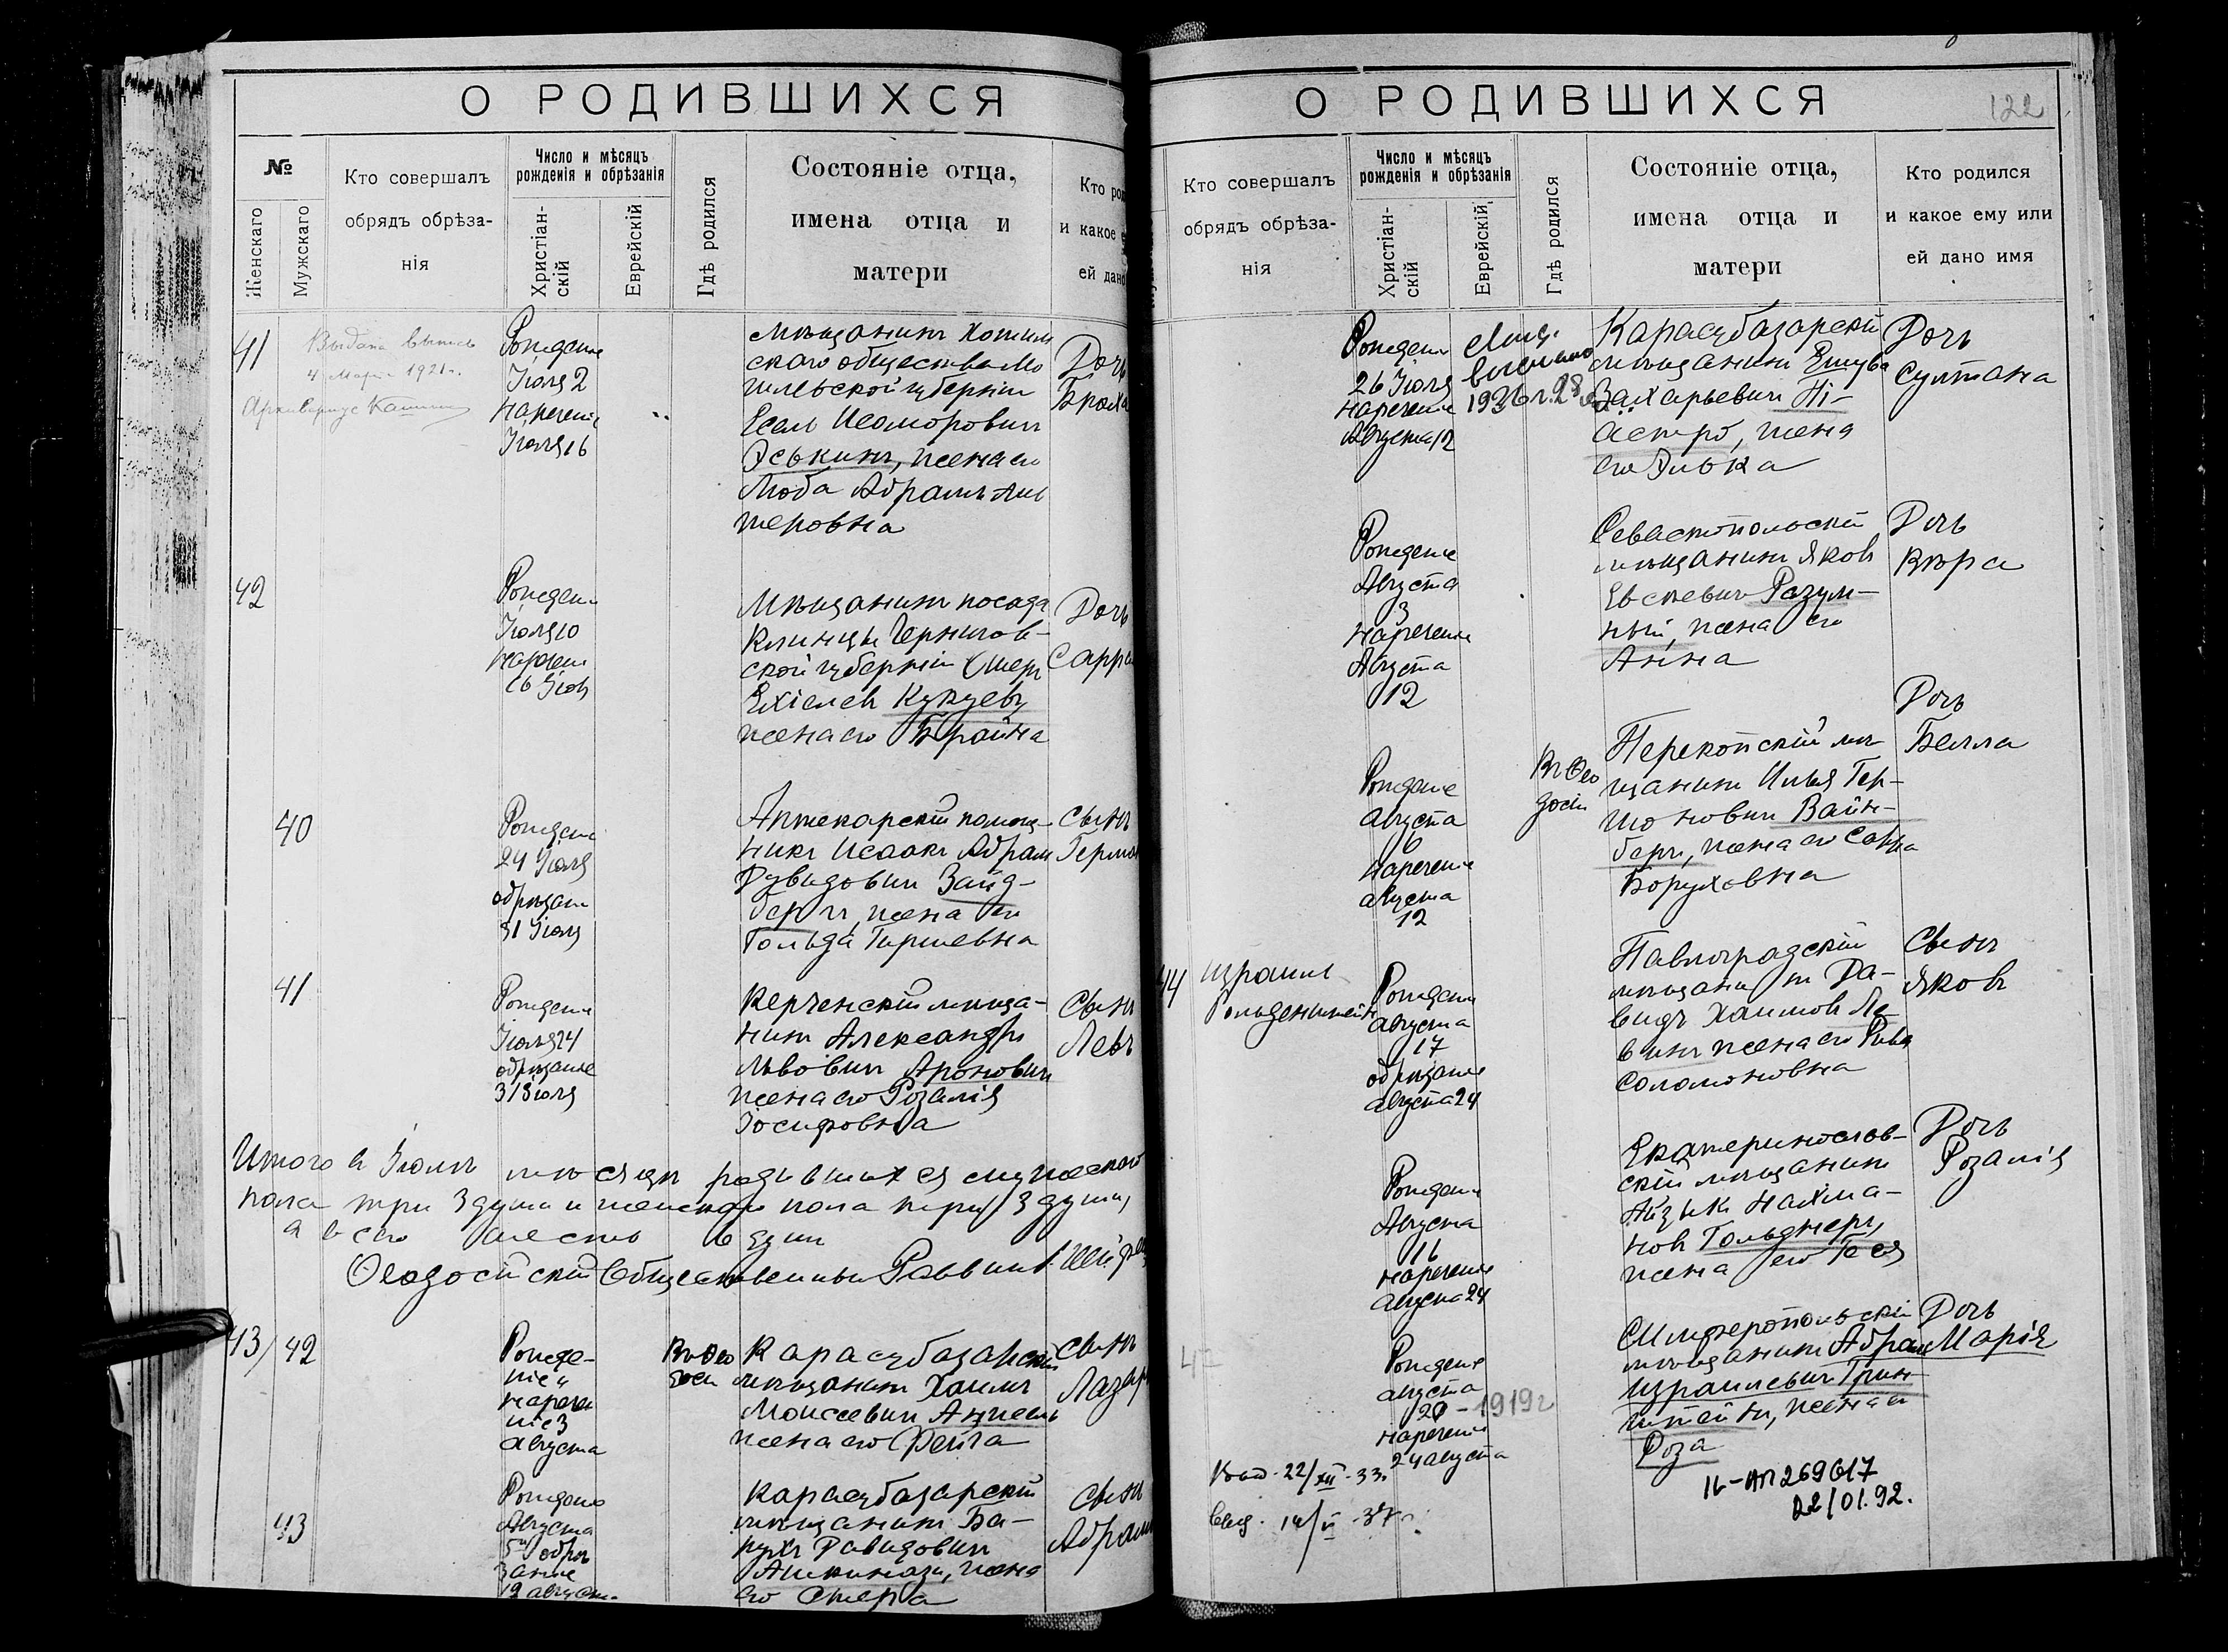 О РОДИВШИХСЯ
№
Женскаго
Мужскаго
Кто совершалъ
обрядъ обрѣза-
нія
Число и мѣсяцъ
рожденія и обрѣзанія
Христіан-
скій
Еврейскій
Гдѣ родился
Состояніе отца,
имена отца и
матери
Кто
и какое
ей дано
41
Выдана выпись
4 Марта 1921 г.
Архиваріус
Рожденіе
Іюля 2
нареченіе
Іюля 16
мѣщанинъ
скаго общества Мо
гилевской губерніи
Оськинъ, жена его
Люба Абрамъ
Дочь
Броха
42
Рожденіе
Іюля 10
16 Іюля
Мѣщанинъ посада
Клинцы Чернигов-
ской губерніи
жена его Брайна
Дочь
Сарра
40
Рожденіе
24 Іюля
обрѣзаніе
31 Іюля
Аптекарскій помощ-
никъ Исаакъ Абрам
Давидовичъ Зайд-
бергъ, жена его
Гольда Гиршевна
Сынъ
41
Рожденіе
Іюля 24
обрѣзаніе
31 Іюля
Керченскій мѣща-
нинъ Александръ
Львовичъ Ароновичъ
жена его Розалія
Іосифовна
Сынъ
Левъ
Итого въ Іюлѣ мѣсяцѣ родившихся мужескаго
пола три 3 души и женскаго пола три 3 души,
а всего шесть 6 душ
Ѳеодосійскій Общественный Раввинъ
43/
42
Рожде-
ніе
нарече
ніе 3
августа
Въ Ѳео
досіи
Карасубазарскій
мѣщанинъ Хаимъ
Моисеевичъ
жена его Фейга
Сынъ
Лазарь
43
Рожденіе
Августа
5 обрѣ
заніе
12 августа
Карасубазарскій
мѣщанинъ Ба-
рухъ Давидовичъ
Ашкинази, жена
его Стера
Сынъ
Абрамъ
О РОДИВШИХСЯ
122
Кто совершалъ
обрядъ обрѣза-
нія
Число и мѣсяцъ
рожденія и обрѣзанія
Христіан-
скій
Еврейскій
Гдѣ родился
Состояніе отца,
имена отца и
матери
Кто родился
и какое ему или
ей дано имя
Рожденіе
26 Іюля
нареченіе
Августа 12
Карасубазарскій
мѣщанинъ Ешуа
Захарьевичъ Пі-
астро, жена
его
Дочь
Султана
Рожденіе
Августа
3
нареченіе
Августа
12
Севастопольскій
мѣщанинъ Яковъ
Евсеевичъ Разум-
ный, жена его
Анна
Дочь
Вѣра
Рожденіе
Августа
6
нареченіе
августа
12
Въ Ѳео
досіи
Перекопскій мѣ
щанинъ Илья Гер-
шоновичъ Вайн-
бергъ, жена его
Боруховна
Дочь
Белла
44
Израиль
Гольденштейн
Рожденіе
августа
17
обрѣзаніе
августа 24
Павлоградскій
мѣщанинъ Да-
видъ Хаимовъ Ле-
винъ жена его Рива
Соломоновна
Сынъ
Яковъ
Рожденіе
Августа
16
нареченіе
августа 24
Екатеринослав-
скій мѣщанинъ
Айзыкъ Нахма-
новъ
жена его
Дочь
Розалія
Рожденіе
августа
20 - 1919 г
нареченіе
24 августа
Симферопольскій
мѣщанинъ Абрам
Израилевичъ Грин-
штейнъ, жена его
Роза
Дочь
Марія
22/XII-33г.
14/II-37г.
269617
22/01.92.